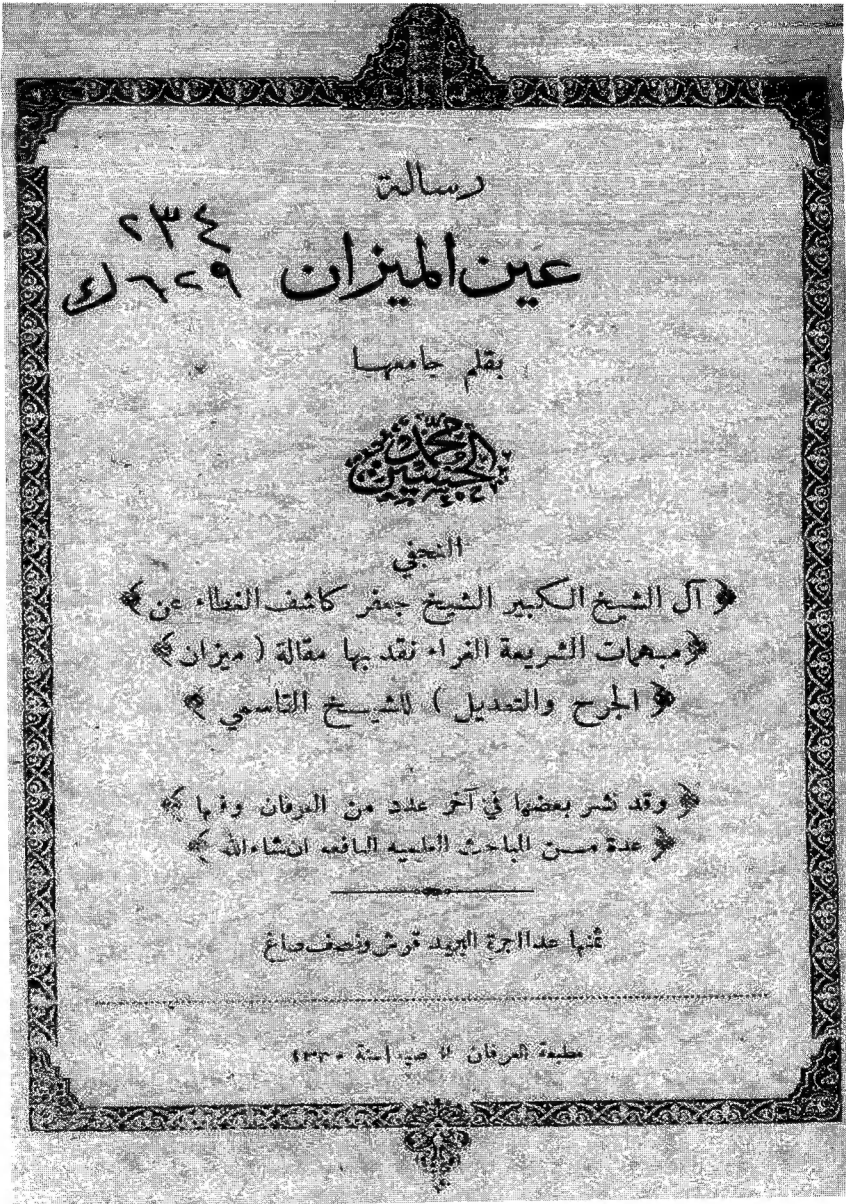 رسالة
عين الميزان
٢٣٤
٦٢٩ ك
بقلم جامعها
محمد الحسين
النجفي
﴿ آل الشيخ الكبير الشيخ جعفر كاشف الغطاء عن ﴾
﴿ مبهمات الشريعة الغراء نقد بها مقالة ( ميزان ﴾
﴿ الجرح والتعديل ) للشيخ القاسمي ﴾
﴿ وقد نشر بعضها في آخر عدد من العرفان وفيها ﴾
﴿ عدة من المباحث العلميه النافعه ان شاء الله ﴾
ثمنها عدا اجرة البريد قرش ونصف صاغ
مطبعة العرفان صيدا سنة ١٣٣٠